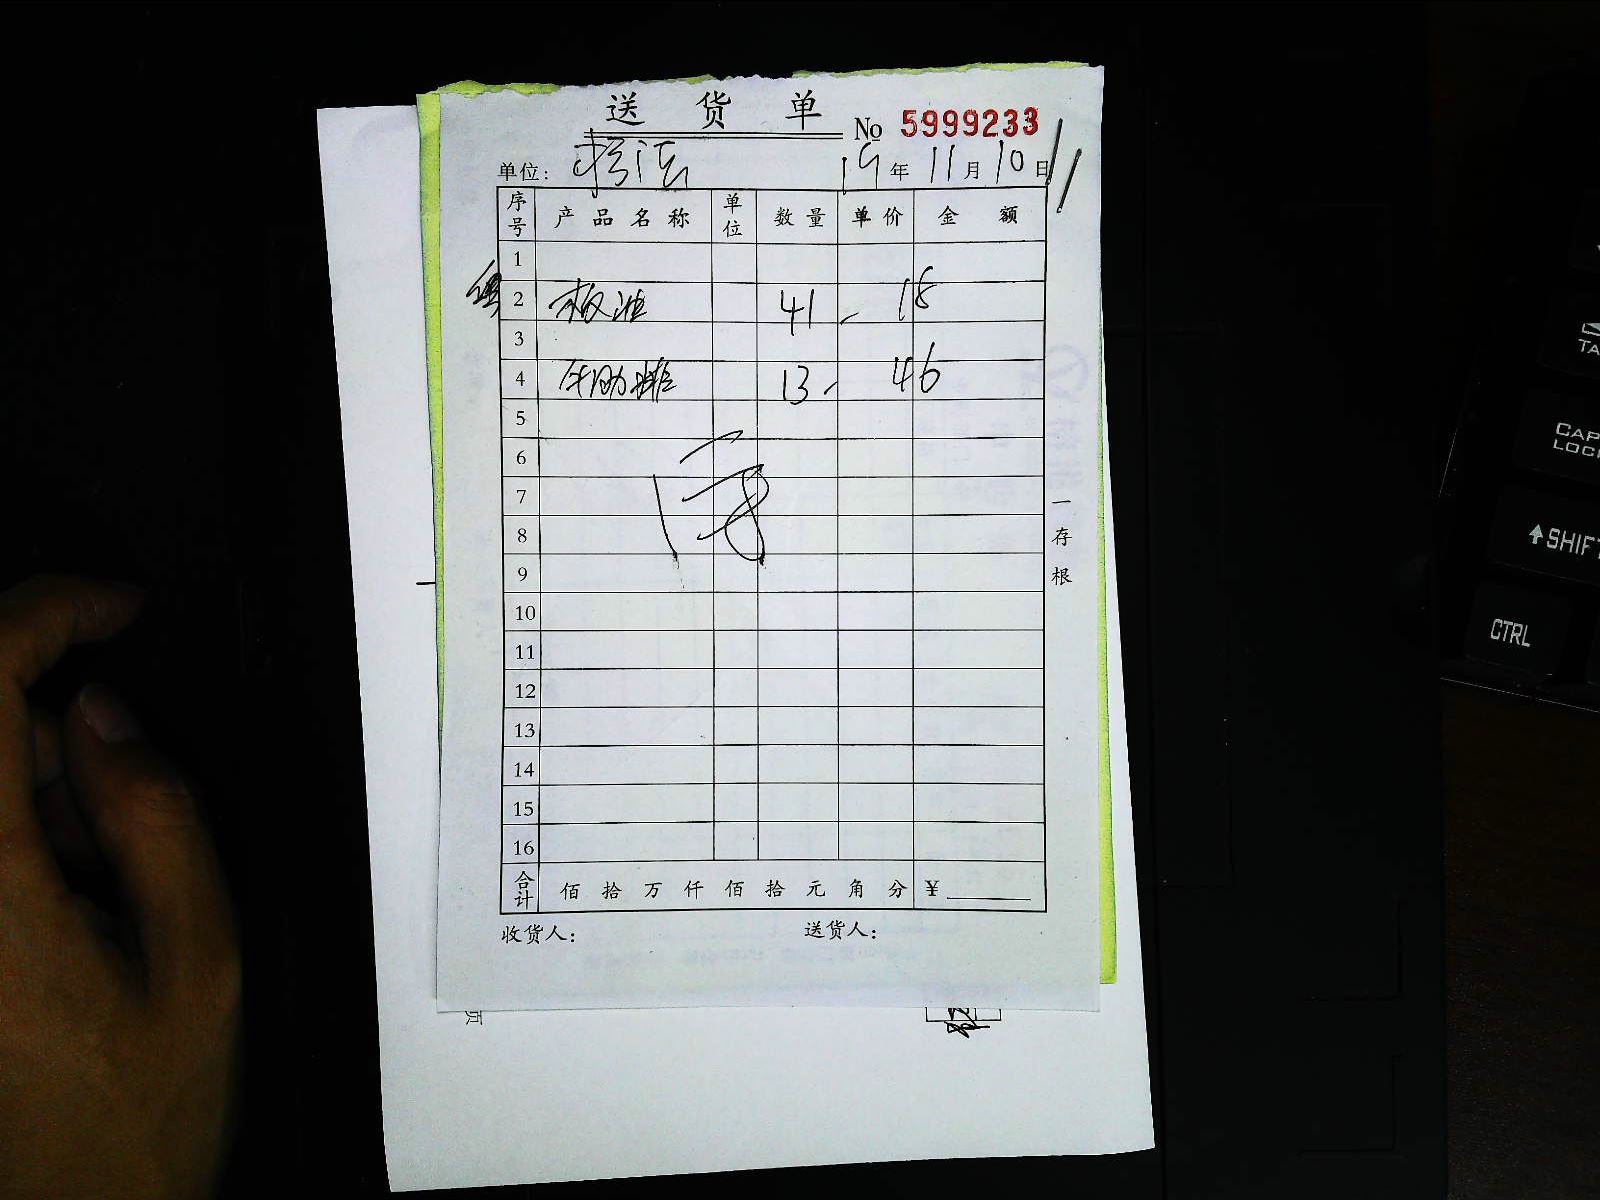 送货单
No 5999233
单位: 19年11月10日
序号 产品名称 单位 数量 单价 金额
1
2 板油 41 - 18
3
4 牛肋排 13 - 46
5
6
7
8
9
10
11
12
13
14
15
16
合计 佰拾万仟佰拾元角分 ¥
收货人: 送货人:
一存根
页
TA
CAP
LOC
SHIFT
CTRL